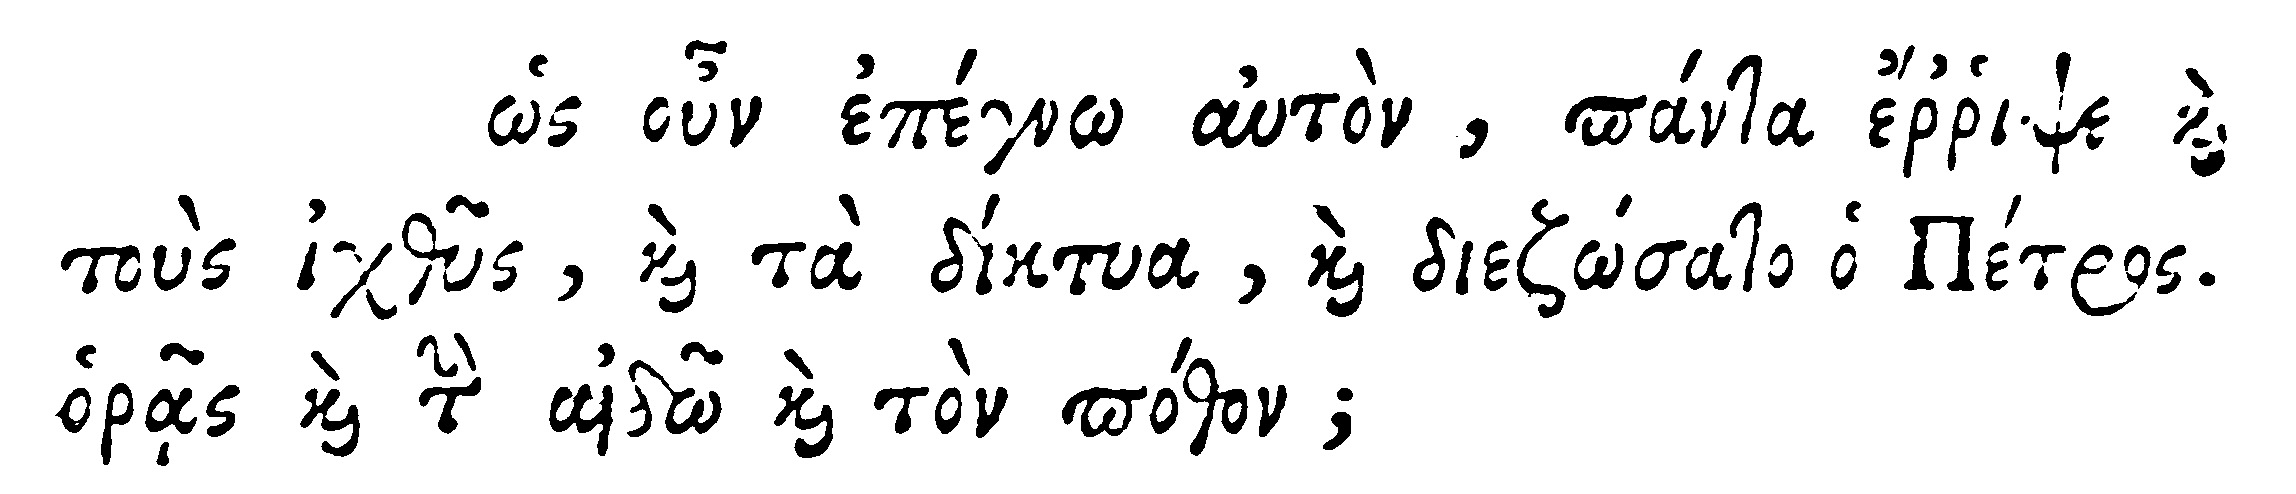 ὡς οὖν ἐπέγνω αὐτὸν, πάντα ἔῤῥιψε ϗ̀
τοὺς ἰχθῦς, ϗ̀ τὰ δίκτυα, ϗ̀ διεζώσατο ὁ Πέτρος.
ὁρᾷς ϗ̀ τὴν αἰδῶ ϗ̀ τὸν πόθον;